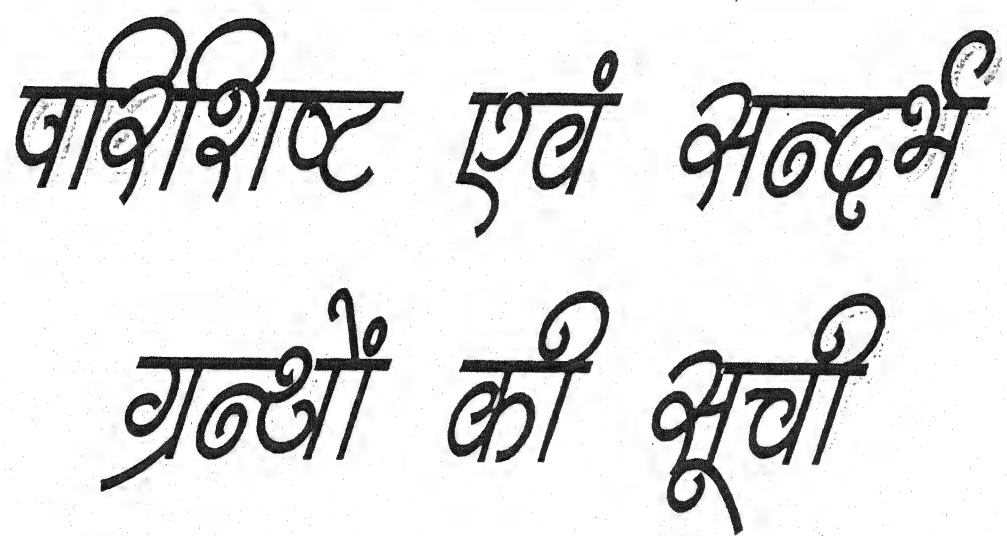 परिशिष्ट एवं सन्दर्भ
ग्रन्थों की सूची